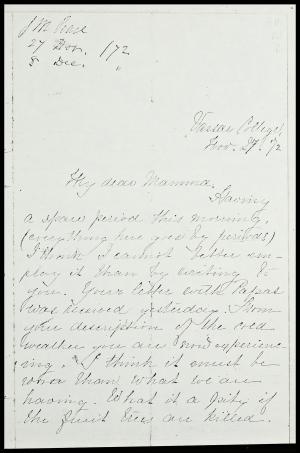 J M Pease
27 Nov. 1872
5 Dec. "
Vassar College,
Nov. 27. '72
My dear Mamma,
Having
a spare period this morning,
(everything here goes by periods)
I think I cannot better em-
ploy it than by writing to
you. Your letter with Papas
was received yesterday. From
your description of the cold
weather you are now experienc-
ing. I think it must be
worse than what we are
having. What a pity if
the fruit trees are killed.